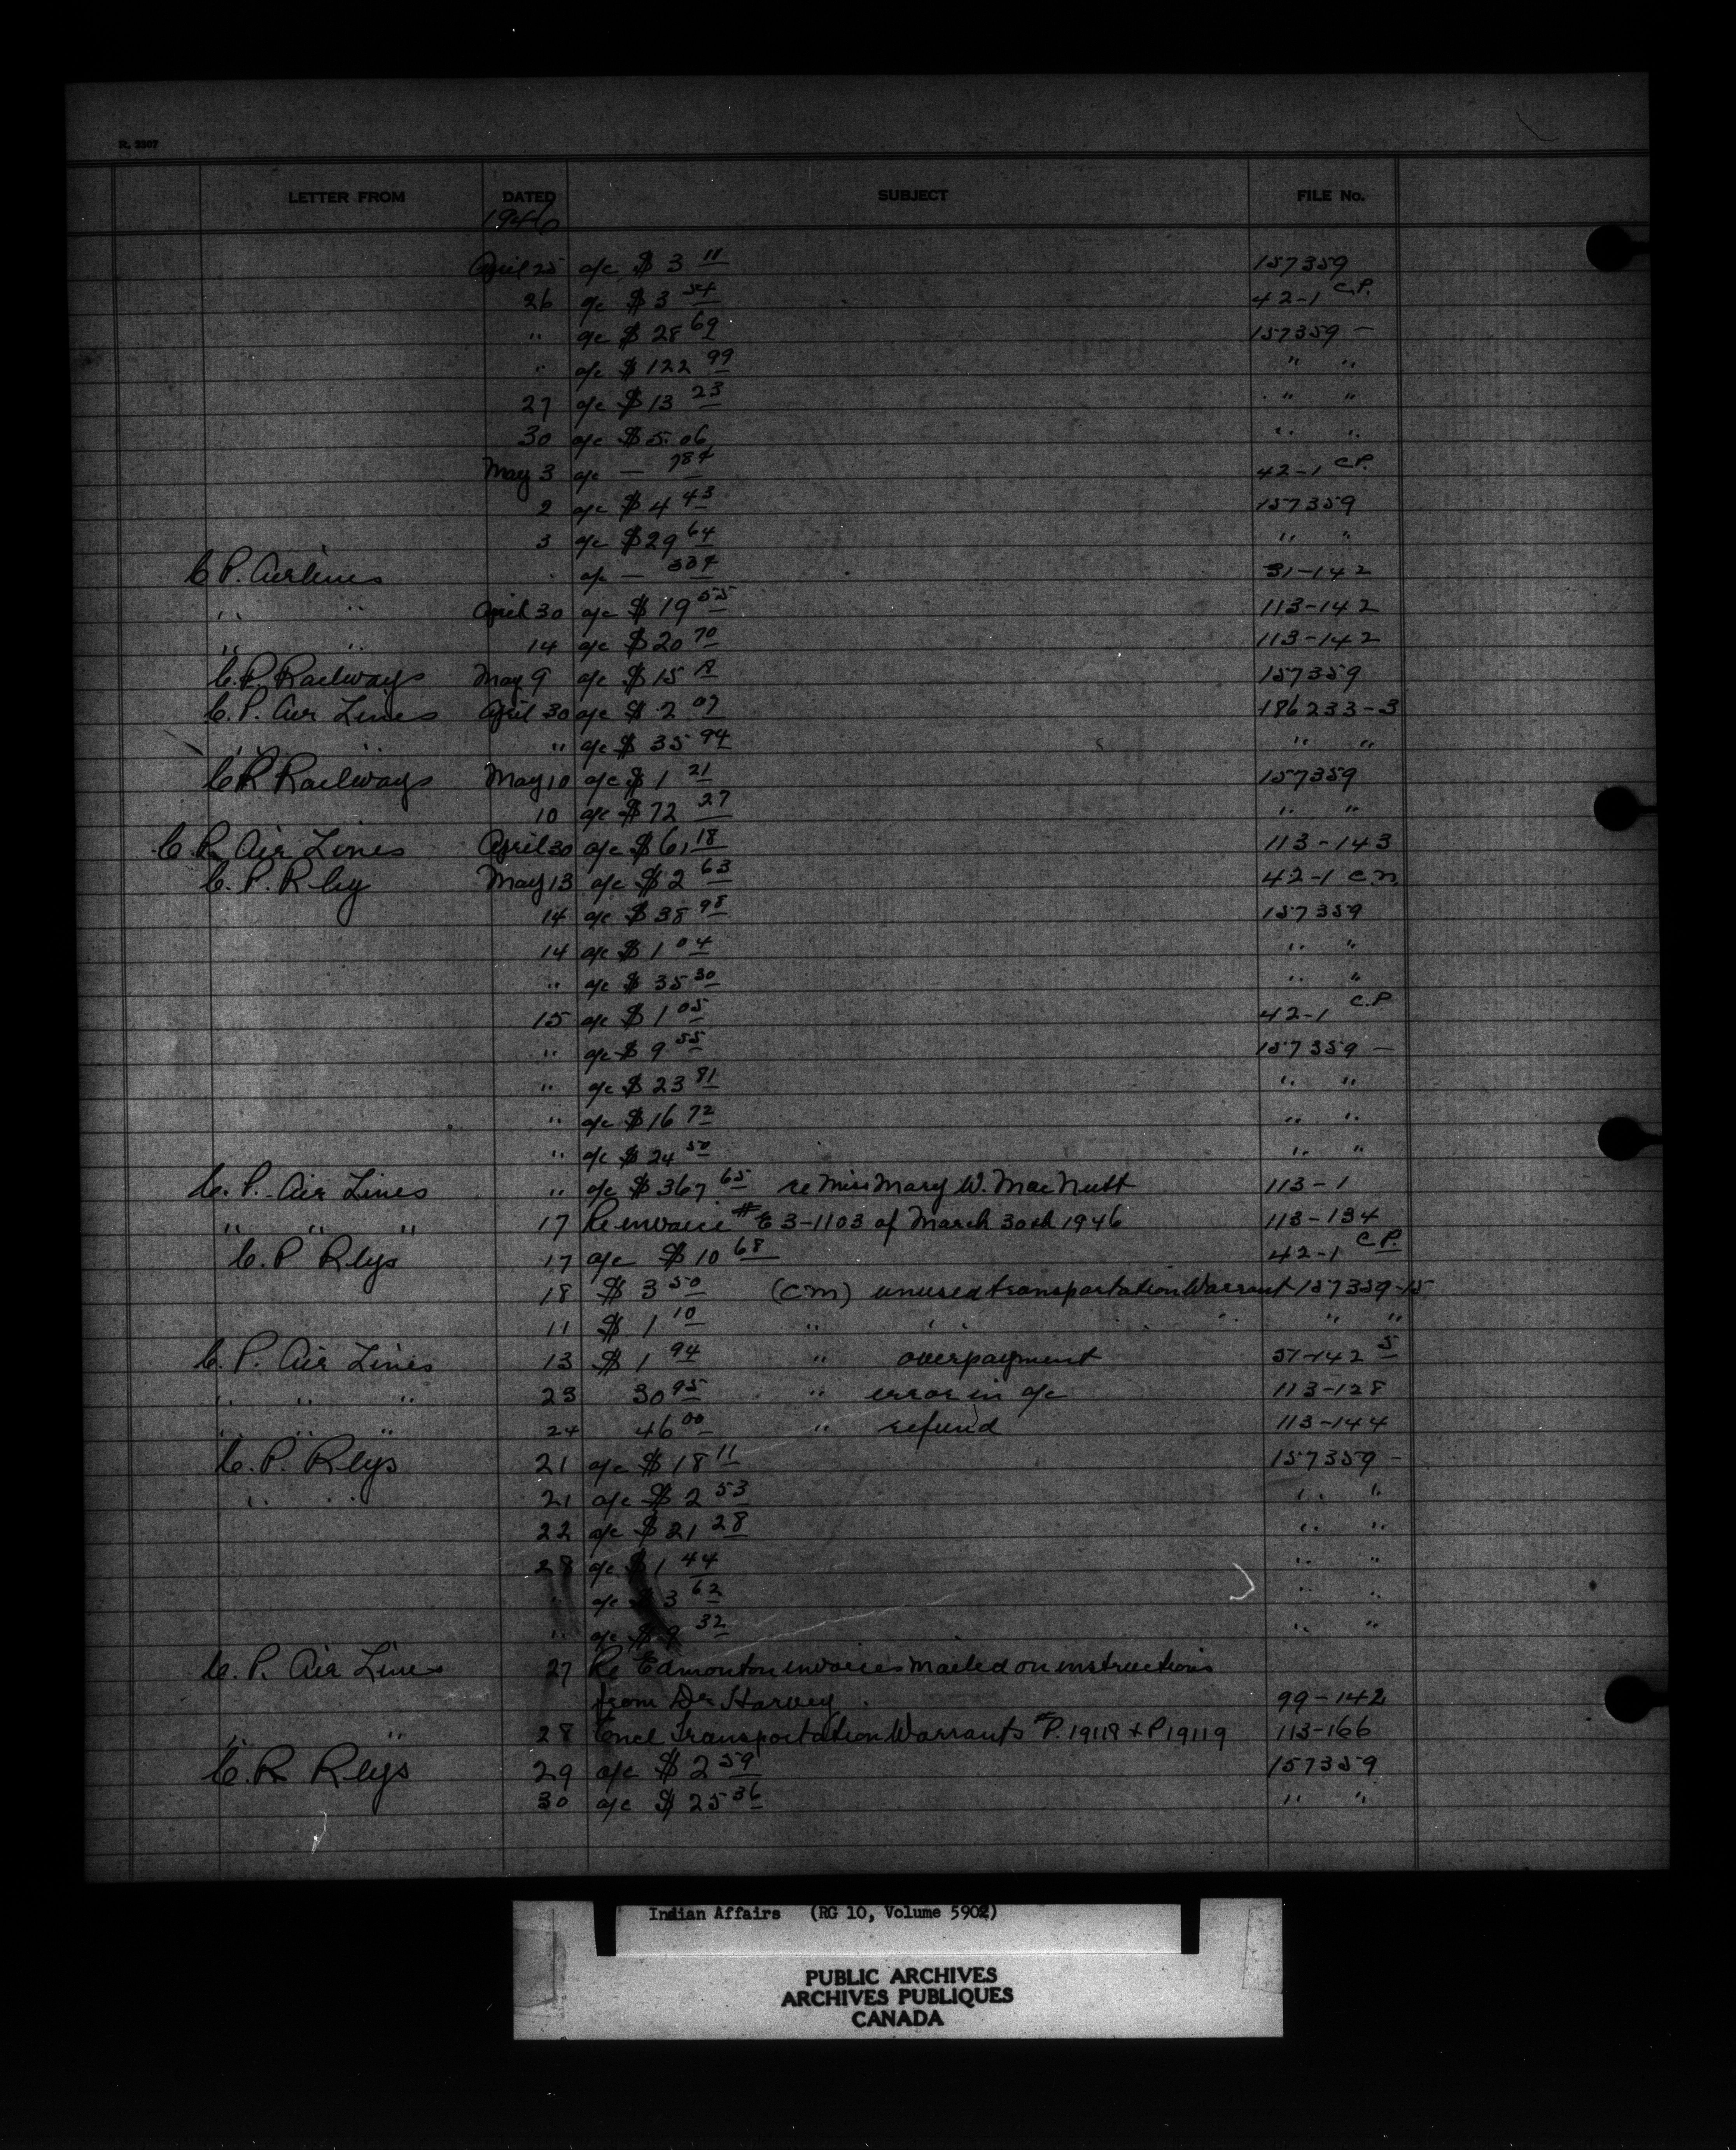 R. 3307
LETTER FROM DATED SUBJECT FILE No.
1946
April 25 a/c $ 3 11 157359
26 a/c $ 3 54 42-1 C.P.
" a/c $ 28 69 157359 -
" a/c $ 122 99 " "
27 a/c $ 13 23 " "
30 a/c $ 5.06 " "
May 3 a/c — 78¢ 42-1 C.P.
2 a/c $ 4 43 157359
3 a/c $ 29 64 " "
C P. Airlines " a/c — 33¢ 31-142
" " April 30 a/c $ 19 55 113-142
" " 14 a/c $ 20 70 113-142
C.P. Railways May 9 a/c $ 15 157359
C.P. Air Lines April 30 a/c $ 2 07 186233-3
" " " a/c $ 35 94 " "
C P Railways May 10 a/c $ 1 21 157359
10 a/c $ 72 27 " "
C P. Air Lines April 30 a/c $ 61 18 113-143
C. P. Rly May 13 a/c $ 2 63 42-1 C.N.
14 a/c $ 38 98 157359
14 a/c $ 1 04 " "
" a/c $ 35 30 " "
15 a/c $ 1 05 42-1 C.P
" a/c $ 9 55 157359 —
" a/c $ 23 81 " "
" a/c $ 16 72 " "
" a/c $ 24 50 " "
C. P. Air Lines " a/c $ 367 65 re Miss Mary W. MacNutt 113-1
" " " 17 Re invoice # E 3-1103 of March 30th 1946 113-134
C. P Rlys 17 a/c $ 10 68 42-1 C.P.
18 $ 3 50 (CM) unused transportation Warrant 157359-15
11 $ 1 10 " " " " "
C. P. Air Lines 13 $ 1 94 " overpayment 51-142 5
" " " 23 30 95 " error in a/c 113-128
" " " 24 46 00 " refund 113-144
C. P. Rlys 21 a/c $ 18 11 157359 -
" " 21 a/c $ 2 53 " "
22 a/c $ 21 28 " "
28 a/c $ 1 44 " "
" a/c $ 3 62 " "
" a/c $ 9 32 " "
C. P. Air Lines 27 Re Edmonton invoices mailed on instructions
from Dr Harvey. 99-142
" " 28 Encl Transportation Warrants #P. 19118 + P19119 113-166
C. P. Rlys 29 a/c $ 2 59 157359
30 a/c $ 25 36 " "
Indian Affairs (RG 10, Volume 5902)
PUBLIC ARCHIVES
ARCHIVES PUBLIQUES
CANADA